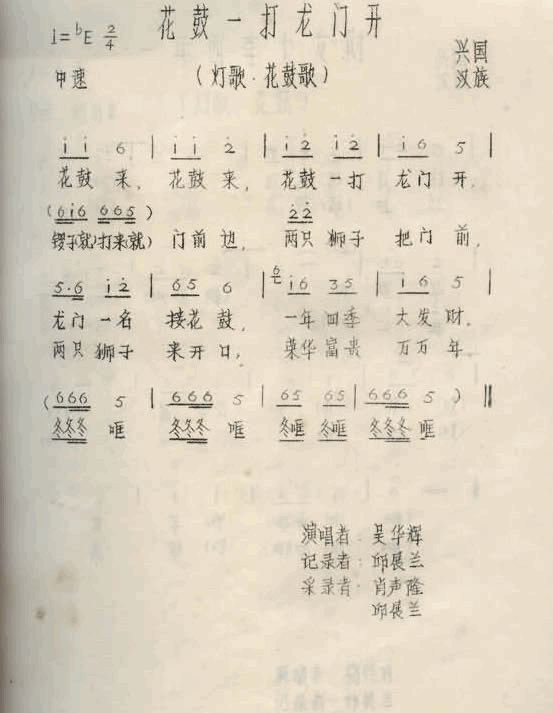 花鼓一打龙门开
1=ᵇE 2/4
(灯歌·花鼓歌)
兴国
中速
汉族
i i 6 | i i 2 | i 2 i 2 | i 6 5 |
花鼓 来, 花鼓 来, 花鼓 一打 龙门 开,
(6i6 665) 2 2
锣子就 打来就) 门前 边, 两只 狮子 把门 前,
5·6 i 2 | 65 6 | 6 i6 35 | i 6 5 |
龙门 一名 接花 鼓, 一年 四季 大发 财.
两只 狮子 来开 口, 荣华 富贵 万万 年
(666 5 | 666 5 | 65 65 | 666 5 ) ‖
冬冬冬 哐 冬冬冬 哐 冬哐 冬哐 冬冬冬 哐
演唱者: 吴华辉
记录者: 邱展兰
采录者: 肖声隆
邱展兰